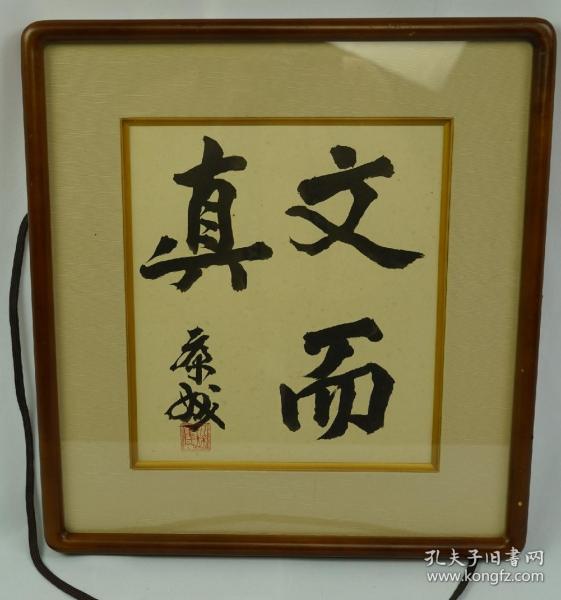 文而
真
孔夫子旧書网
www.kongfz.com